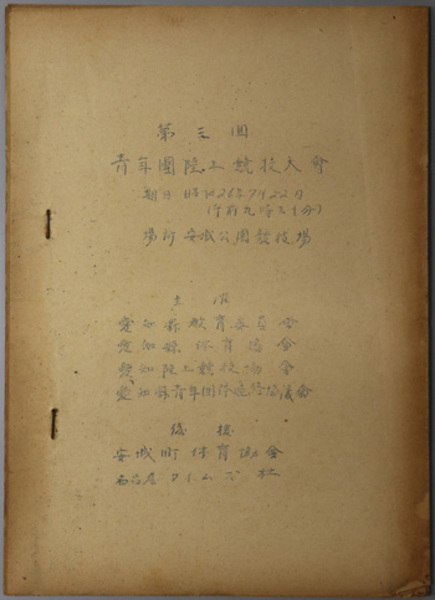 第三回
青年團陸上競技大會
期日 昭和26年7月22日
(午前九時三十分)
場所 安城公園競技場
主催
愛知縣教育委員会
愛知縣体育協会
愛知陸上競技協会
愛知縣青年団体連絡協議会
後援
安城町体育協会
名古屋タイムズ社